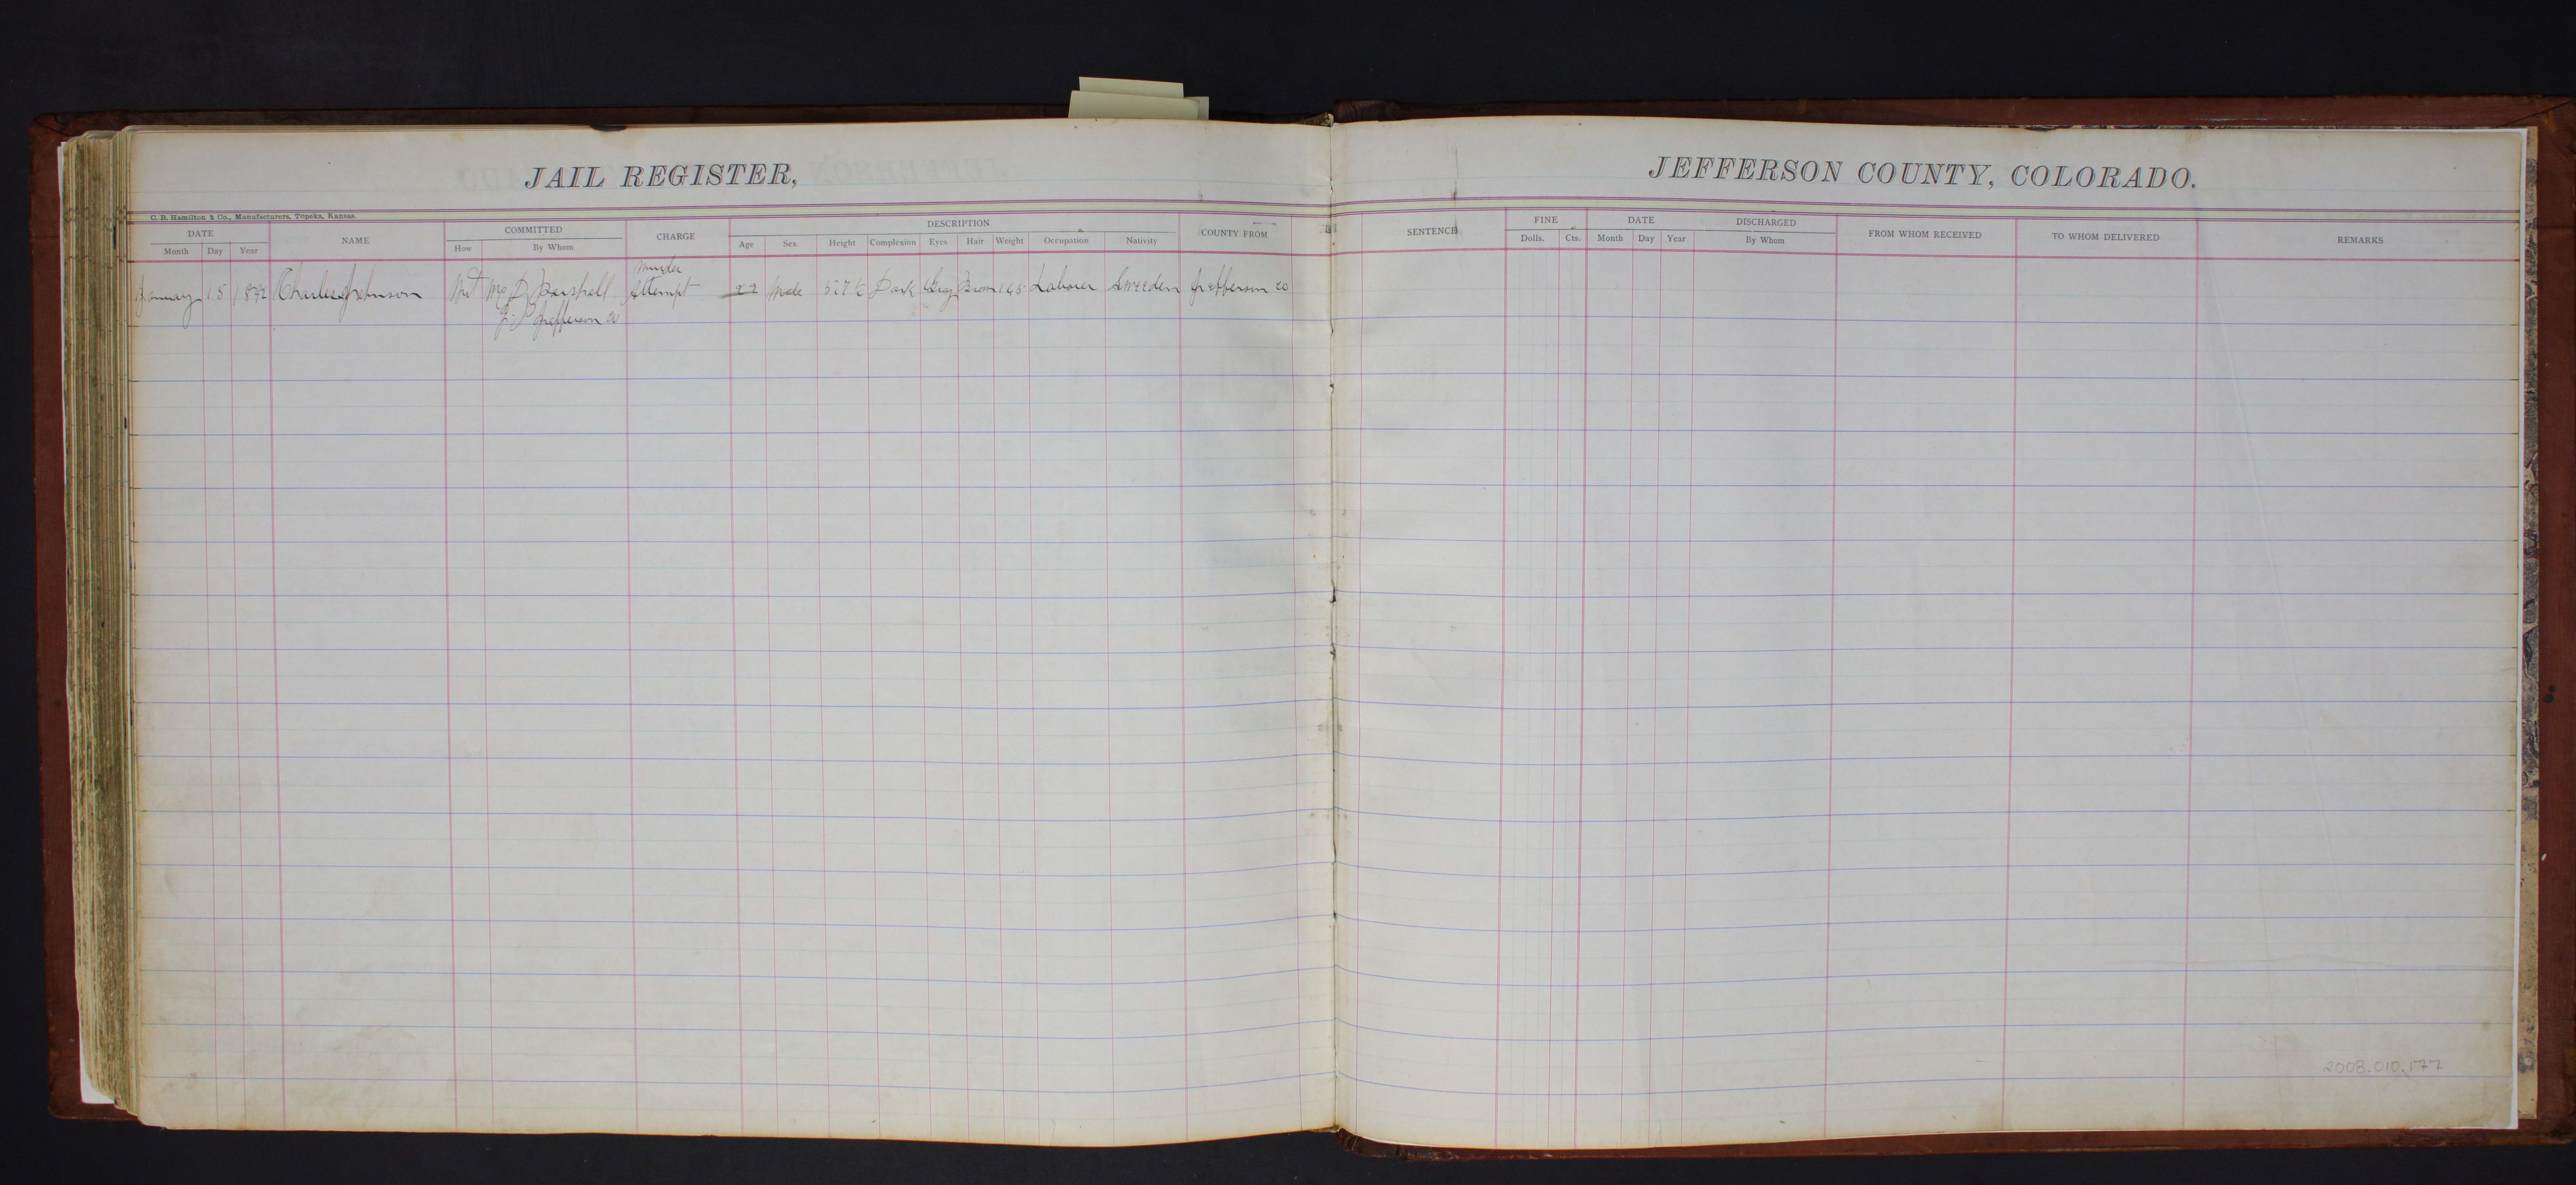 JAIL REGISTER,
JEFFERSON COUNTY, COLORADO.
C. B. Hamilton & Co., Manufacturers, Topeka, Kansas.
DATE
Month Day Year
NAME
COMMITTED
How By Whom
CHARGE
DESCRIPTION
Age Sex Height Complexion Eyes Hair Weight Occupation Nativity
COUNTY FROM
SENTENCE
FINE
Dolls. Cts.
DATE DISCHARGED
Month Day Year By Whom
FROM WHOM RECEIVED
TO WHOM DELIVERED
REMARKS
Murder
January 15 Charles Johnson Marshall Attempt 22 Male Dark Gray Brown 165 Laborer Sweeden Jefferson co
Jefferson co
2008.010.177